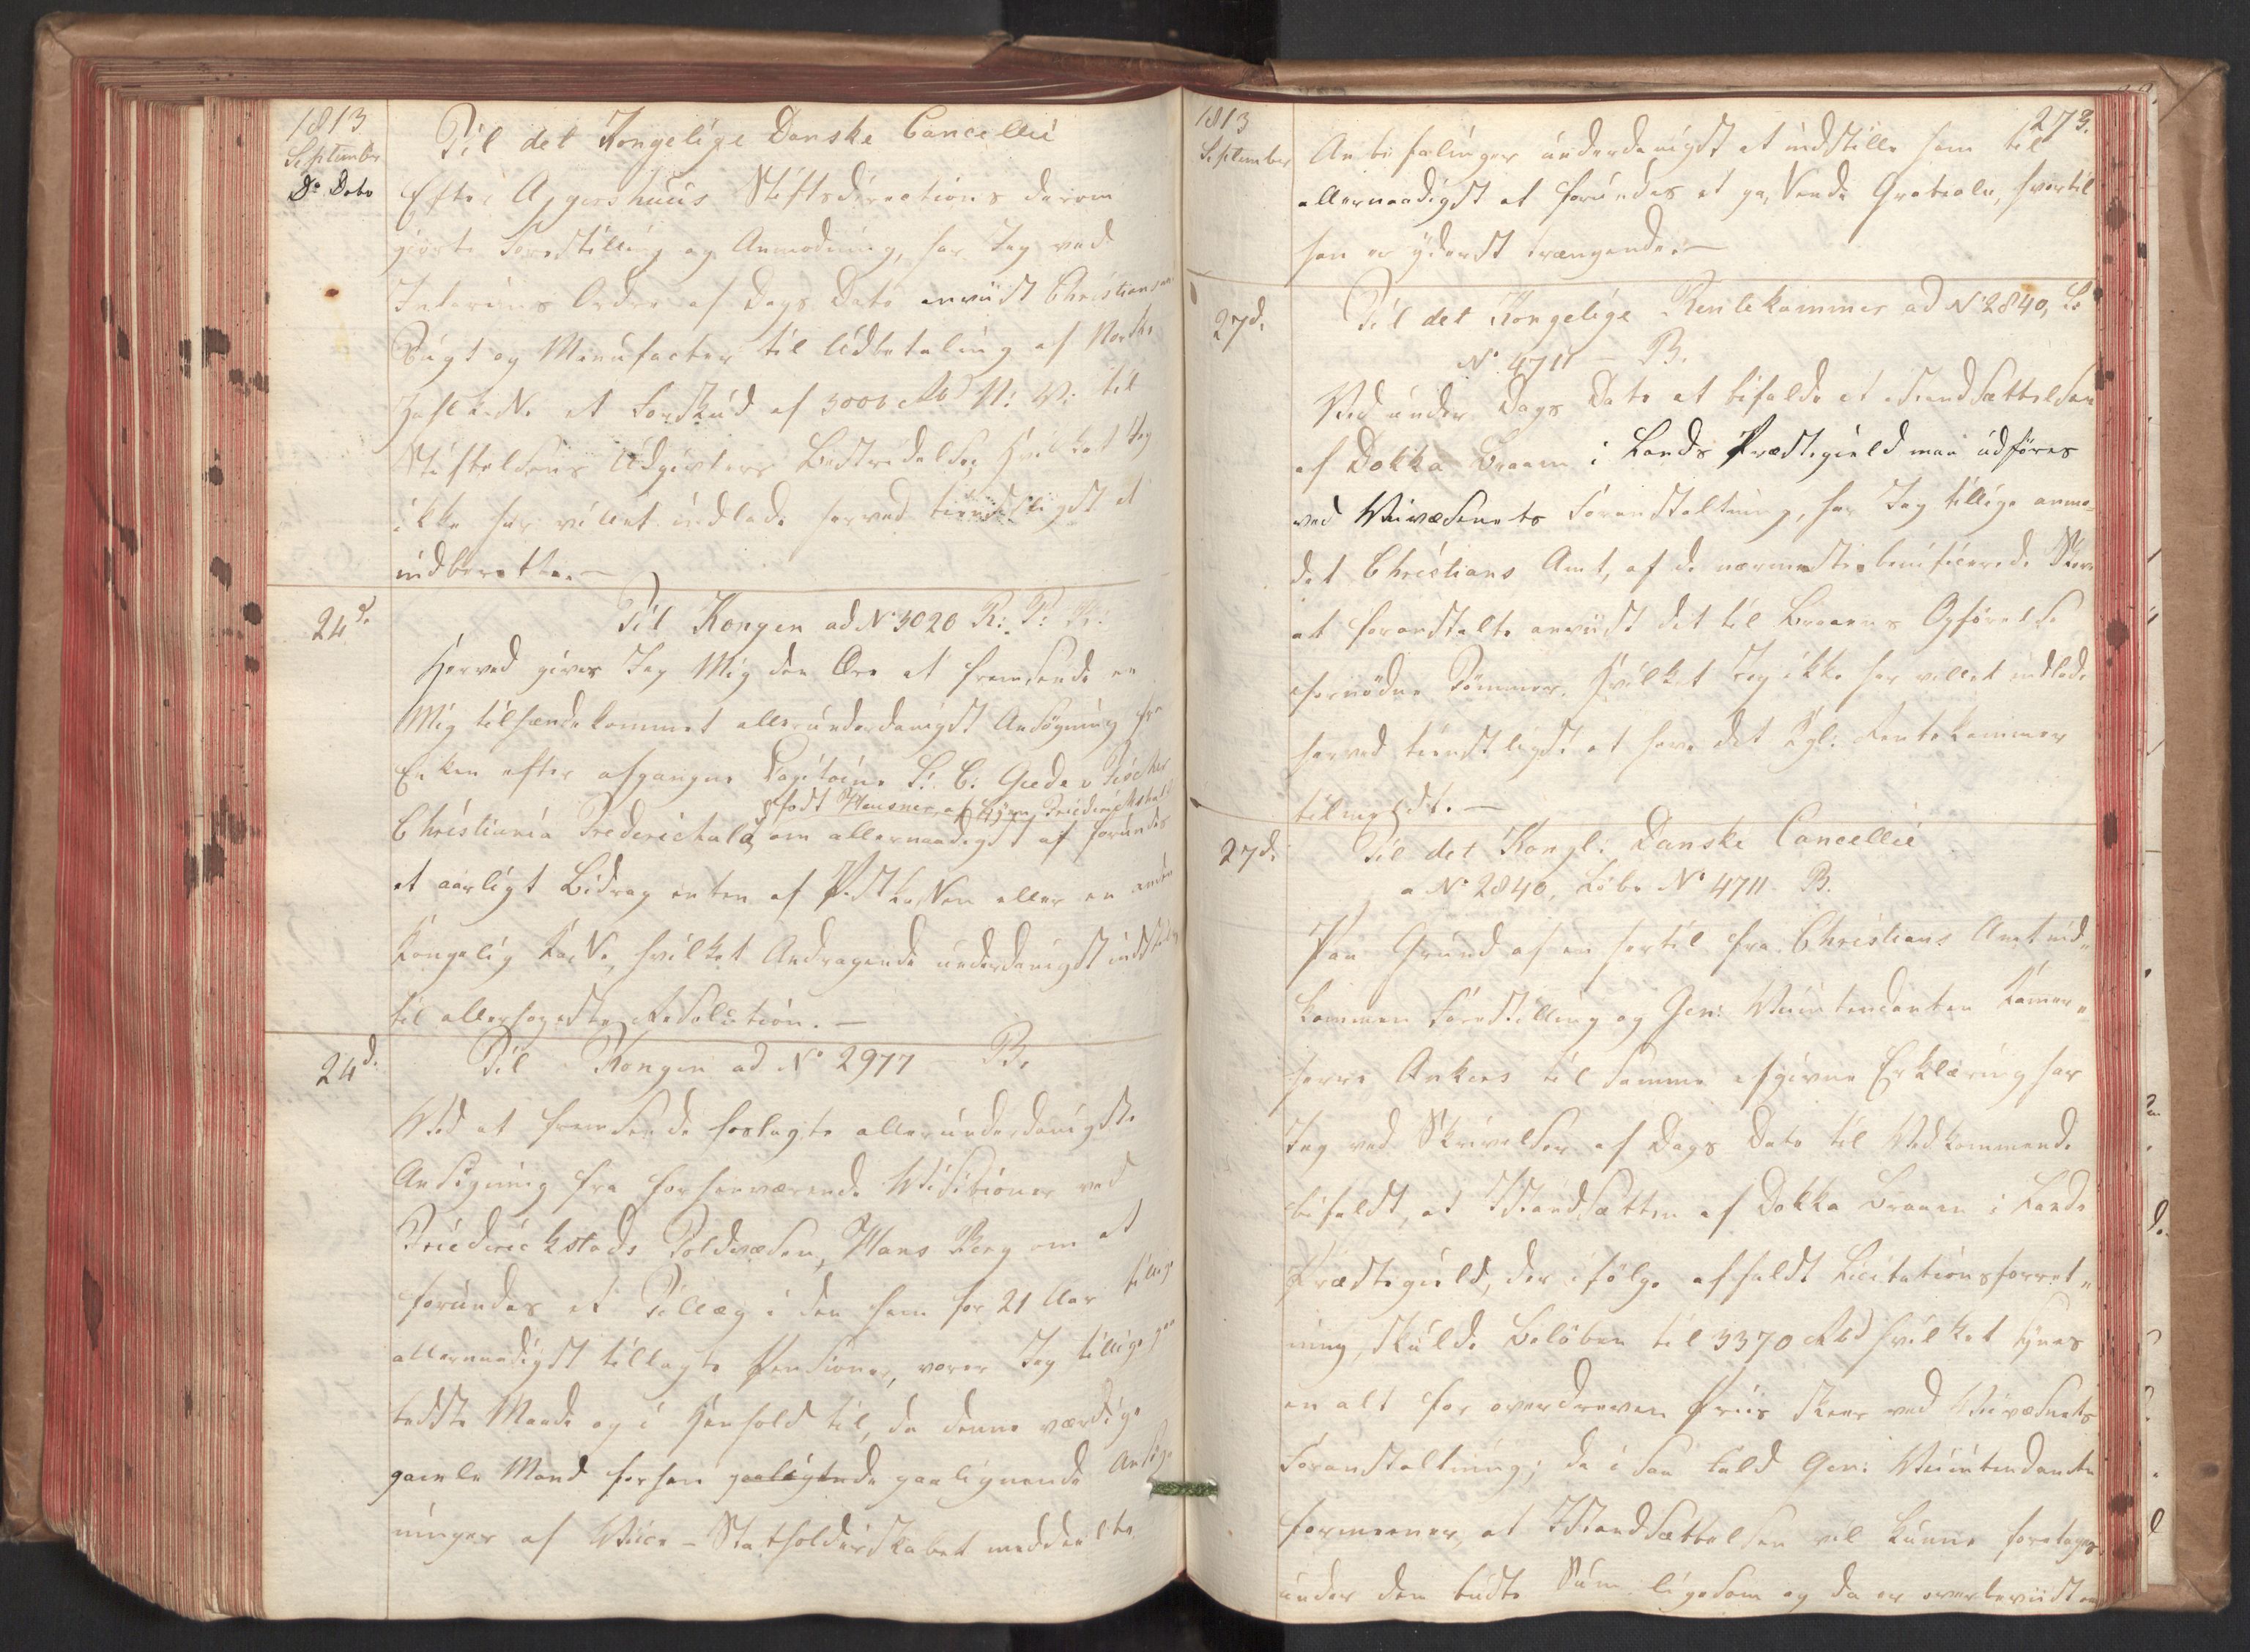 1813
September
Do Dato
Til det Kongelige Danske Cancellie
Efter Aggershuus Stiftsdirections derom
giorte Forestilling og Anmodning, har Jeg ved
Interims Ordre af Dags Dato anviist Christiania
Tugt og Manufactur til Udbetaling af
et Forskud af 3000 Rbd N: V: til
Stiftelsens Udgivters Bestridelse, hvilket Jeg
ikke har villet undlade herved tienstligst at
indberette.—
24d.
Til Kongen ad No 3020 R: P: B:
Herved giver Jeg Mig den Ære at fremsende en
Mig tilhændekommet allerunderdanigst Ansøgning fra
Enken efter afgangne Capitaine L: C: Giede v Fischer
Christiania Frederichala, om allernaadigst at forundes
født Hausner, af Byen Friderichshald
et aarligt Bidrag enten af Postkassen eller en anden
Kongelig Kasse, hvilket Andragende underdanigst indstilles
til allerhøyeste Resolution.—
24d.
Til Kongen ad No 2977 – B.
Ved at fremsende hoslagte allerunderdanigste
Ansøgning fra forhenværende Visitioner ved
Friederickstads Toldvæsen, Hans Berg om at
forundes et Tillæg i den ham for 21 Aar tillige
allernaadigst tillagte Pension, vover Jeg tillige paa
beste Maade og i Henhold til, de denne værdige
gamle Mand forhen paaligtede paalignende Ansøg
ninger af Vice-Statholderskabet meddeelte
1813
September
273.
Anbefalinger underdanigst at indstille ham til
allernaadigst at forundes et passende Gratiale, hvortil
han er yderst trængende.—
27d.
Til det Kongelige Rentekammer ad No 2840, L:
No 4711 – B.
Ved under Dags Dato at bifalde at Istandsættelsen
af Dokka Broen i Lands Præstegield maa udføres
ved Veivæsenets Foranstaltning, har Jeg tillige anmo-
det Christians Amt, af de nærmeste beneficerede Skove
at foranstalte anviist det til Broens Opførelse
fornødne Tømmer. Hvilket Jeg ikke har villet undlade
herved tienstligst at have det Kgl: Rentekammer
tilmeldt.—
27d.
Til det Kongl. Danske Cancellie
a No 2840, Löbe No 4711 B.
Paa Grund af en hertil fra Christians Amt ind-
kommen Forestilling og Gen: Veiintendanten Kamer-
herre Ankers til samme afgivne Erklæring har
Jeg ved Skrivelser af Dags Dato til Vedkommende
bifaldt, at Istandsætten af Dokka Broen i Lands
Præstegield, der ifølge afholdt Licitationsforret-
ning, skulde beløben til 3370 Rbd hvilket synes
en alt for overdreven Priis skeer ved Veivæsenets
Foranstaltning; da i saa Fald Gen: Veiintendanten
formeener, at Istandsættelsen vil kunne foretages
under den budte Sum ligesom og da er overbeviist om